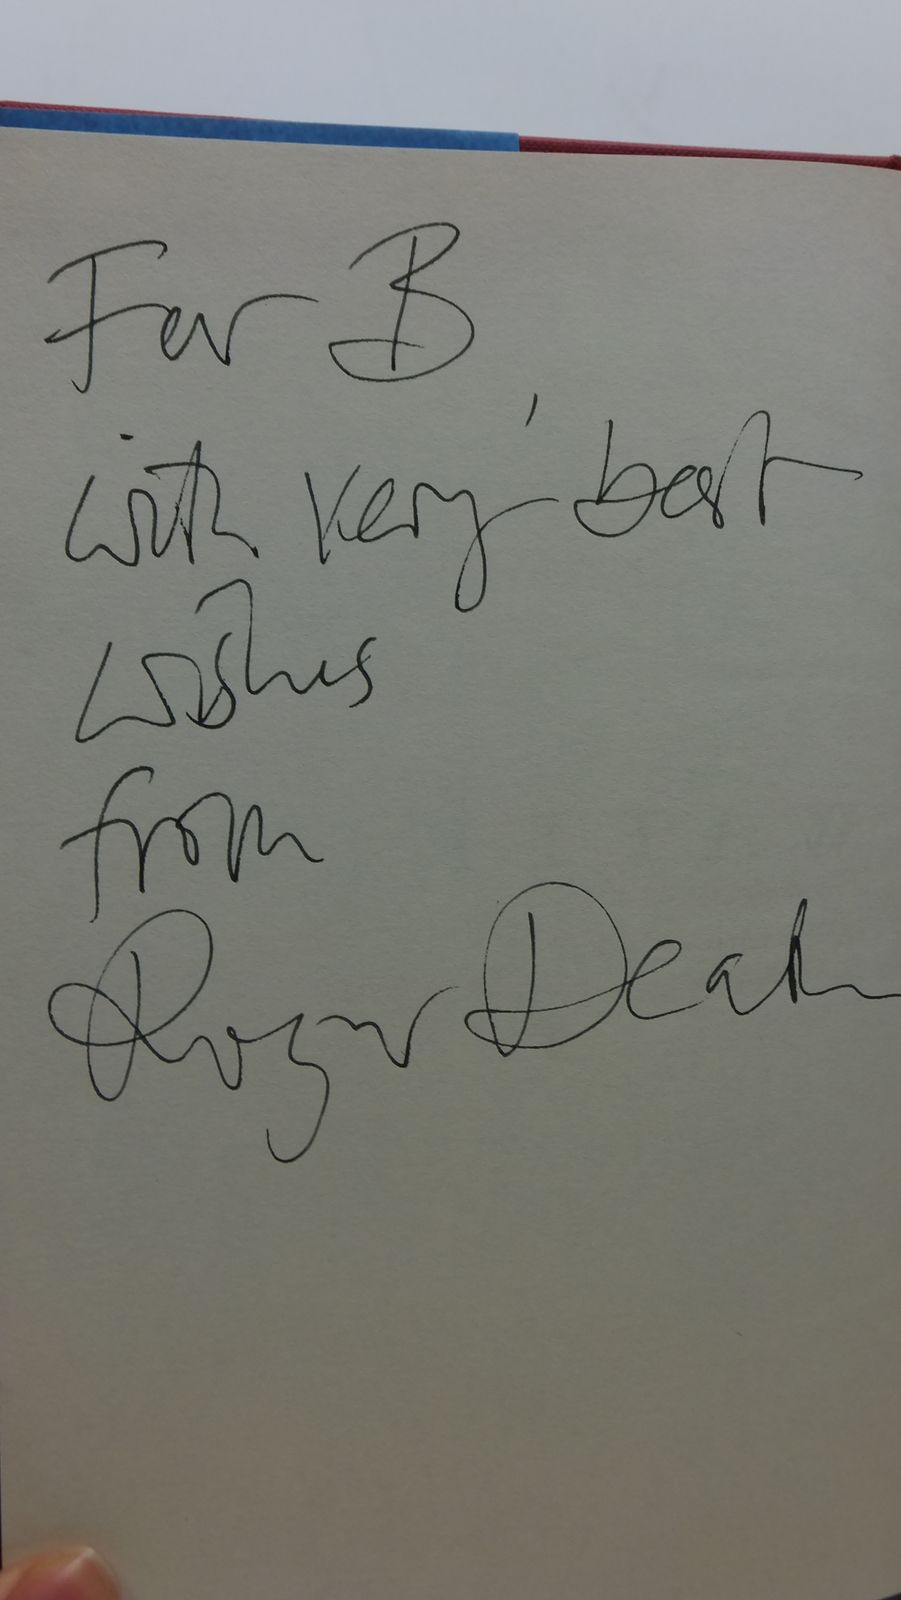 For B,
with very best
wishes
from
Roger Deakin